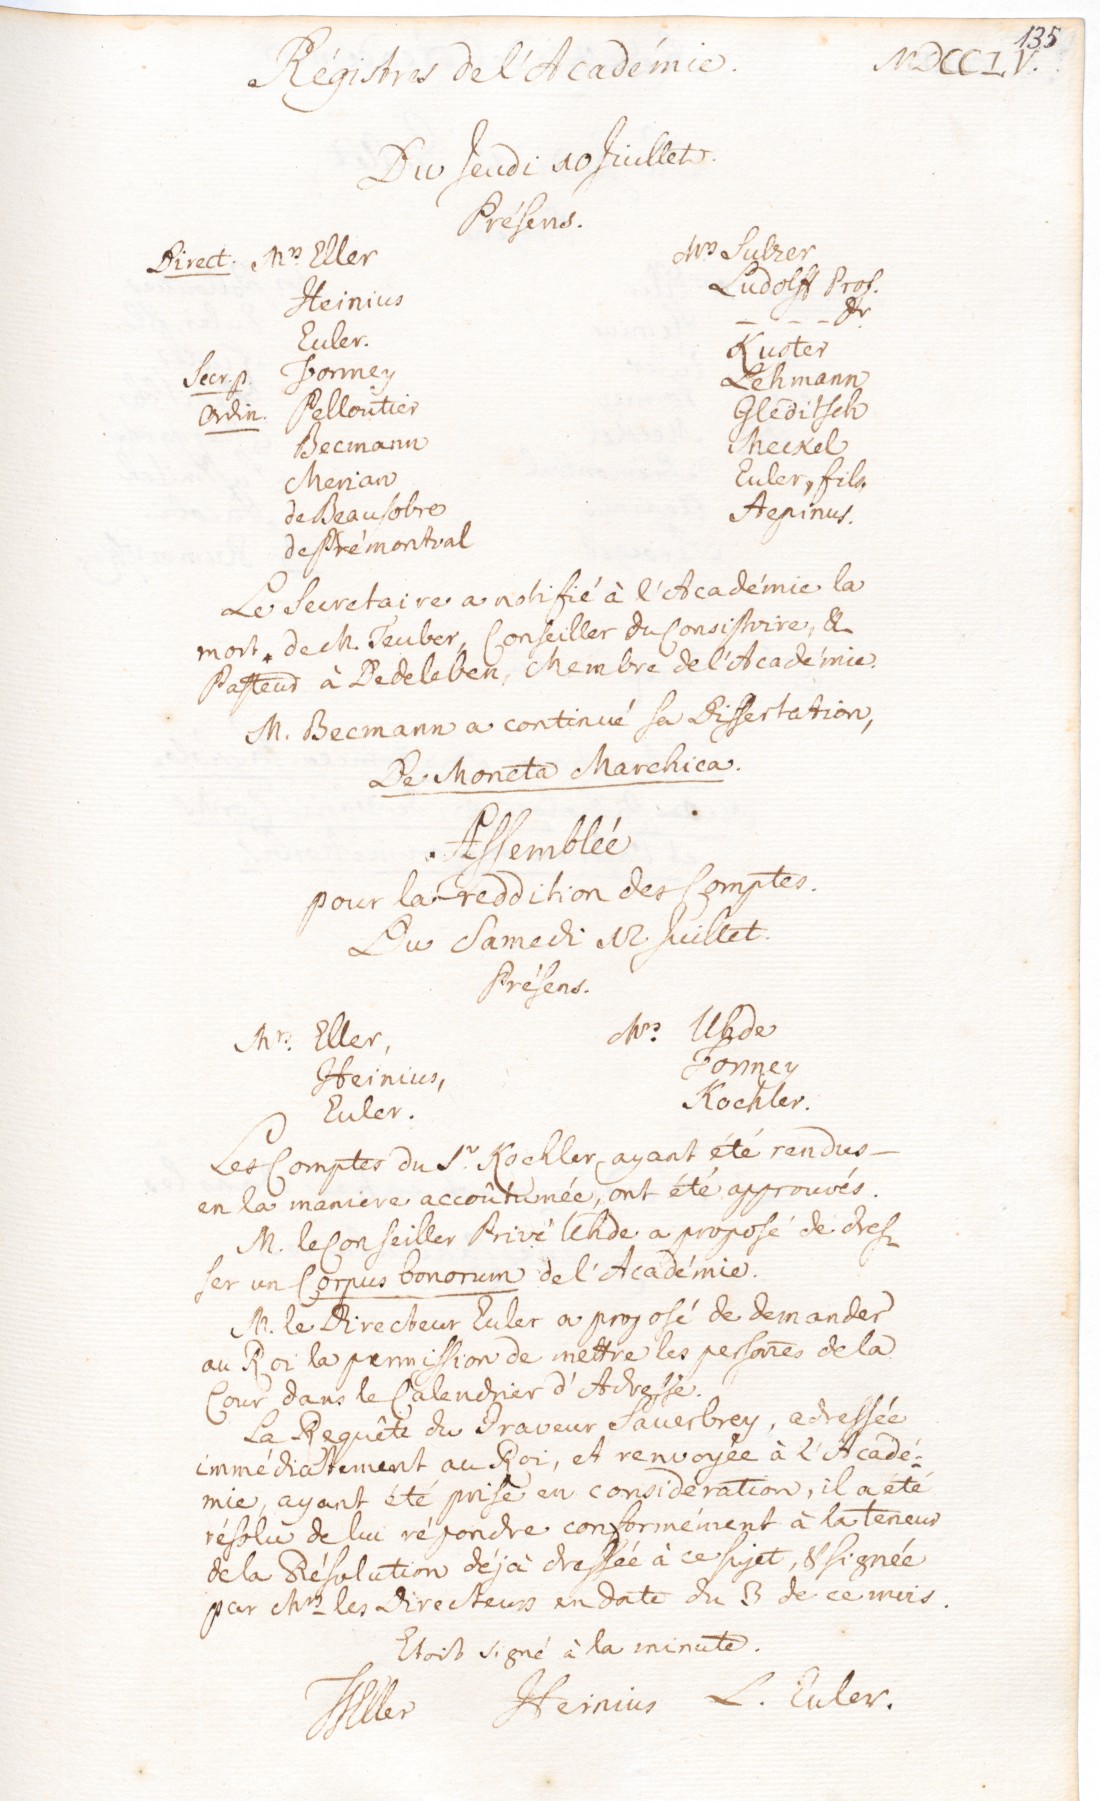 135
Régistres de l'Académie. MDCCLV.
Du Jeudi 10 Juillet.
Présens.
Direct. Mrs Eller
Heinius
Euler.
Secr. p. Formey
Ordin. Pelloutier
Becmann
Merian
de Beausobre
de Prémontval
Mrs Sulzer
Ludolff Prof.
_ _ _ Dr.
Kuster
Lehmann
Gleditsch
Meckel
Euler, fils,
Aepinus.
Le Secretaire a notifié à l'Académie la
mort de M. Teuber, Conseiller du Consistoire, &
Pasteur à Dedeleben, Membre de l'Académie.
M. Becmann a continué sa Dissertation,
De Moneta Marchica.
Assemblée
pour la reddition des Comptes.
Du Samedi 12 Juillet.
Présens.
Mrs. Eller,
Heinius,
Euler.
Mrs. Uhde
Formey
Kochler.
Les Comptes du Sr. Kochler, ayant été rendus
en la maniere accoûtumée, ont été approuvés.
M. le Conseiller Privé Uhde a proposé de dres-
ser un Corpus bonorum de l'Académie.
M. le Directeur Euler a proposé de demander
au Roi la permission de mettre les persones de la
Cour dans le Calendrier d'Adresse.
La Requête du Graveur Sauerbrey, adressée
immédiatement au Roi, et renvoyée à l'Acadé-
mie, ayant été prise en consideration, il a été
résolu de lui répondre conformément à la teneur
de la Résolution déjà dressée à ce sujet, & signée
par Mrs les Directeurs en date du 3 de ce mois.
Etoit signé à la minute.
JTEller Heinius L. Euler.